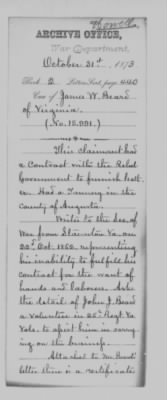 Howell
ARCHIVE OFFICE,
War Department.
October 31st 1873
Book 2 Letters Sent, page 440
Case of James W. Beard
of Virginia.
(No. 15,991.)
This claimant had
a Contract with the Rebel
Government to furnish leath-
er. Had a Tannery in the
County of Augusta.
Writes to the Sec. of
War from Staunton Va. on
20th Oct. 1862, representing
his inability to fulfil his
contract for the want of
hands and laborers. Asks
the detail of John J. Beard
a volunteer in 25th Regt. Va.
Vols. to assist him in carry-
ing on the business.
Attached to Mr. Beard's
letter there is a certificate